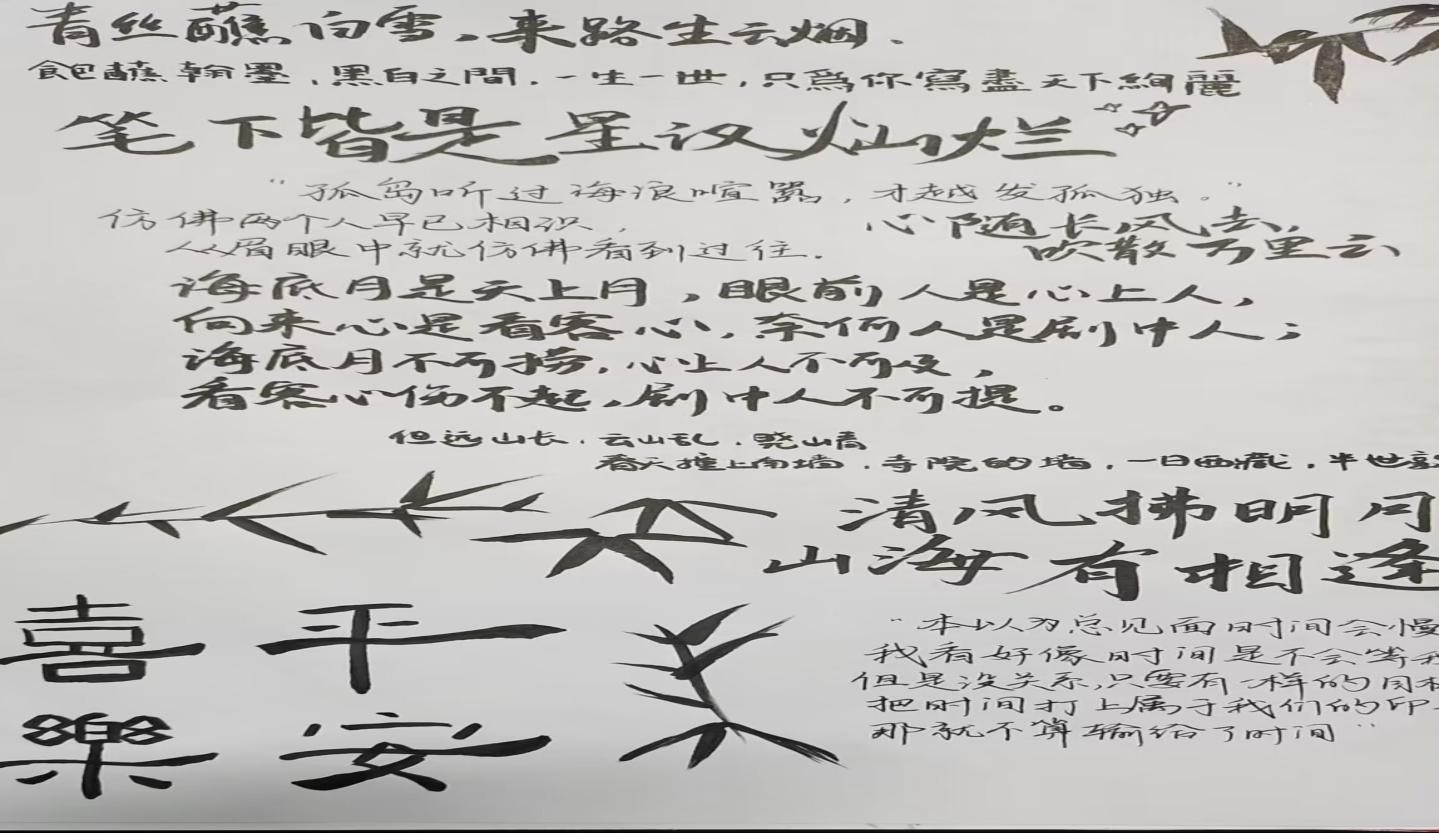 青丝蘸白雪,来路生云烟.
飽蘸翰墨,黑白之間.一生一世,只爲你寫盡天下絢麗
笔下皆是星汉灿烂
"孤岛听过海浪喧嚣,才越发孤独。"
仿佛两个人早已相识,
从眉眼中就仿佛看到过往.
心随长风去,
吹散万里云
海底月是天上月,眼前人是心上人,
向来心是看客心,奈何人是剧中人;
海底月不可捞,心上人不可及,
看客心伤不起,剧中人不可提。
但远山长.云山乱.晓山青
春天撞上南墙.寺院的墙,一日西藏,半世
清风拂明月
山海有相逢
喜 平
樂 安
"本以为总见面时间会慢
我看好像时间是不会等我
但是没关系,只要有一样的目标
把时间打上属于我们的印
那就不算输给了时间"